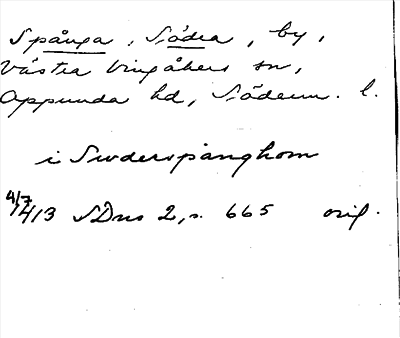 Spånga, Södra, by,
Västra Vingåkers sn,
Oppunda hd, Söderm. l.
i Swderspånghom
4/7
1413 SDns 2, s. 665 orig.